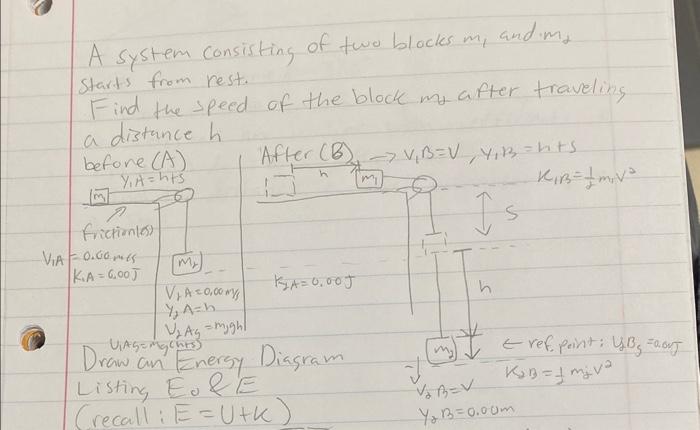 A system consisting of two blocks m₁ and m₂
starts from rest.
Find the speed of the block m₂ after traveling
a distance h
before (A)
Y₁A = h+s
m
frictionless
V₁A = 0.00 m/s
K₁A = 0.00 J
m₂
V₂A = 0.00 m/s
Y₂A = h
U₂Ag = m₂gh
U₁Ag = m₁g(h+s)
After (B)
→ V₁B = V, Y₁B = h+s
h
m₁
K₁B = ½ m₁V²
S
K₂A = 0.00 J
h
m₂
← ref. point: U₂Bg = 0.00J
K₂B = ½ m₂V²
V₂B = V
Y₂B = 0.00m
Draw an Energy Diagram
Listing E₀ & E
(recall: E = U+K)